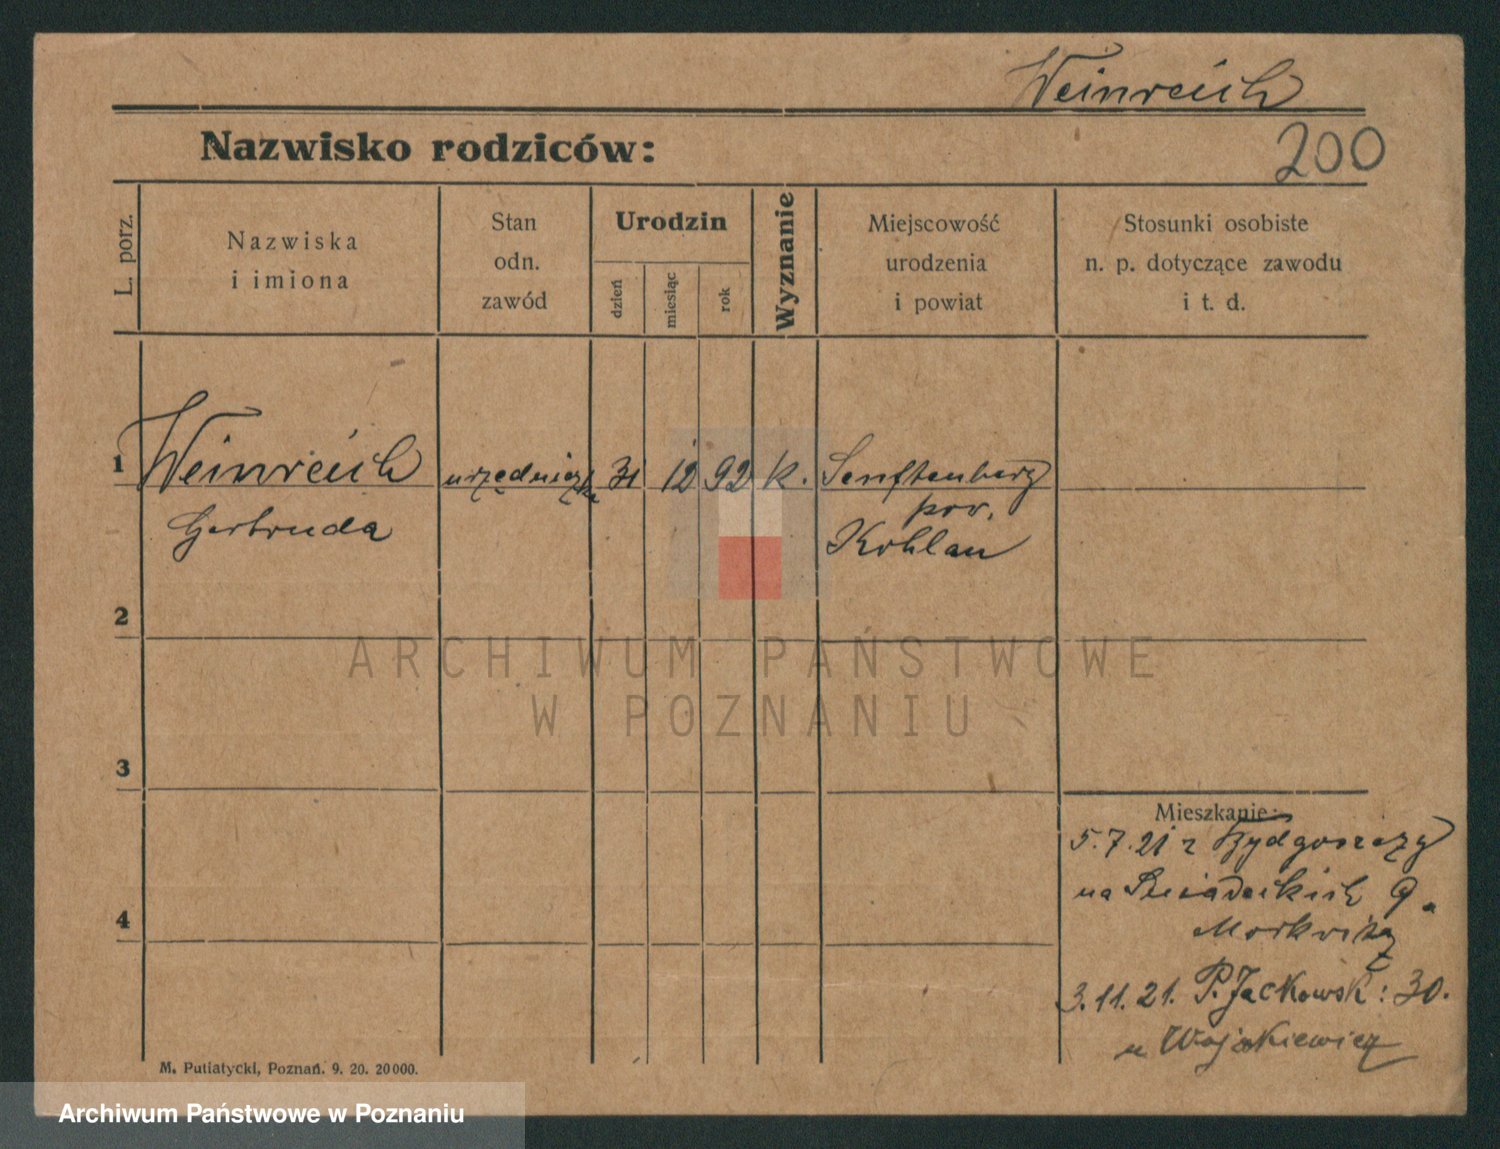 Weinreich
Nazwisko rodziców:
200
L. porz.
Nazwiska
i imiona
Stan
odn.
zawód
Urodzin
dzień
miesiąc
rok
Wyznanie
Miejscowość
urodzenia
i powiat
Stosunki osobiste
n. p. dotyczące zawodu
i t. d.
1 Weinreich urzędniczka 31 12 92 k. Senftenberg
Gertruda
pow.
Kohlau
2
ARCHIWUM PAŃSTWOWE
W POZNANIU
3
Mieszkanie:
5.7.21 z Bydgoszczy
na Śniadeckich 9 a
3.11.21. P. Jackowsk: 30.
u
4
M. Putiatycki, Poznań. 9. 20. 20000.
Archiwum Państwowe w Poznaniu